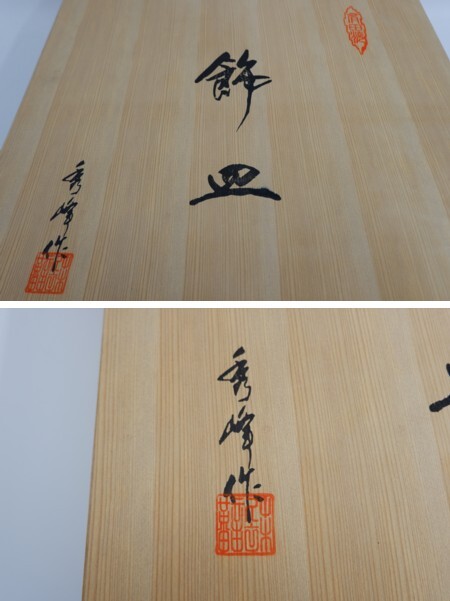 飾皿
秀峰作
秀峰作